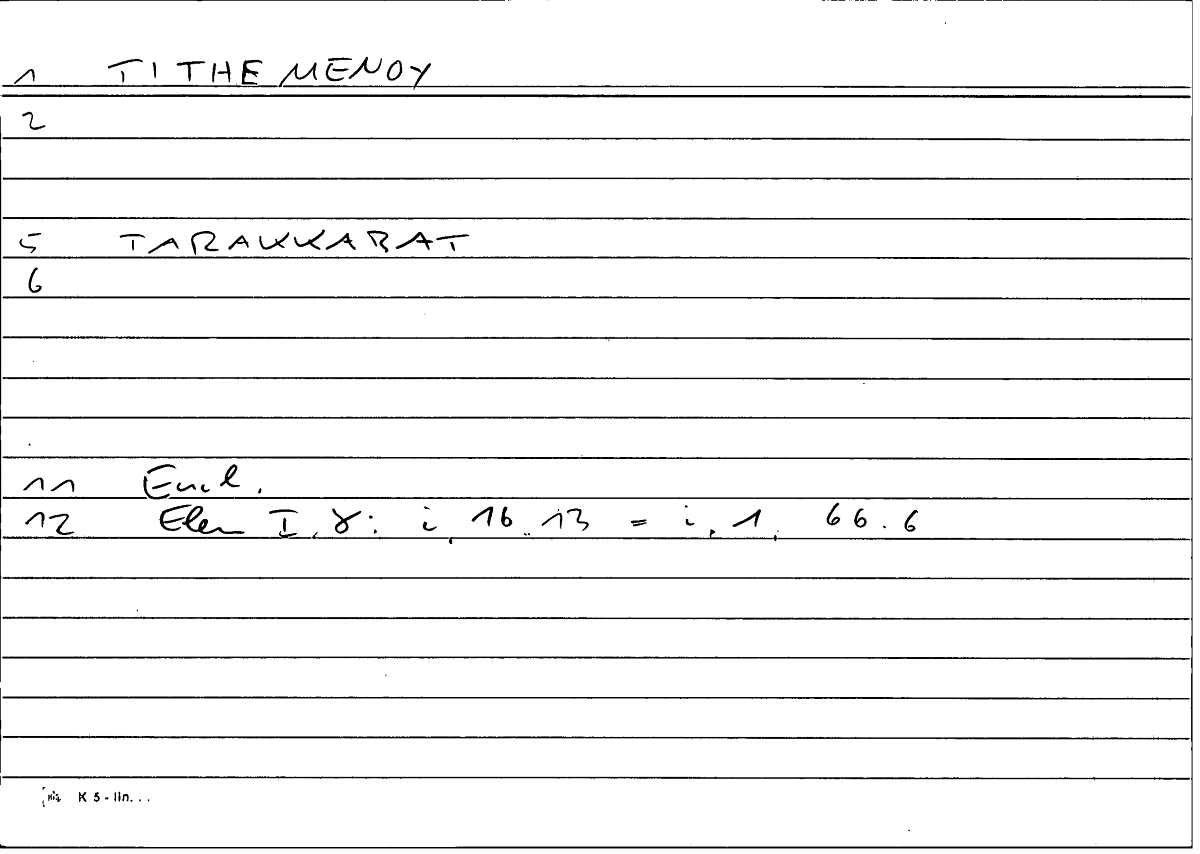 1 TITHEMENOY
2
5 TARAKKABAT
6
11 Eucl.
12 Elem I, γ: i, 16.13 = i, 1, 66.6
K 5 - lin...